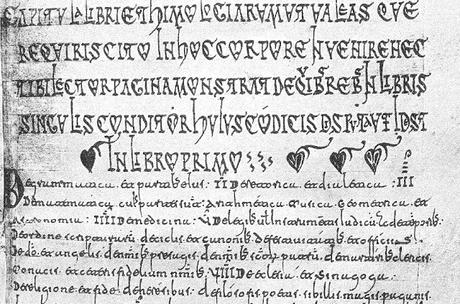 CAPITULA LIBRI ETHIMOLOGIARUM UT VALEAS QUE
REQUIRIS CITO IN HOC CORPORE INVENIRE HEC
TIBI LECTOR PAGINA MONSTRAT DE QIBS REBS IN LIBRIS
SINGULIS CONDITOR HUIUS CODICIS IDST
IN LIBRO PRIMO
De gramatica et partibus eius : II De retorica et dialectica : III
De matematica cuius partes sunt : arithmetica musica geometrica et
astronomia : IIII De medicina : V De legibus instrumentis iudicum et de temporibus
De ordine scripturarum de ciclis et canonibus de festivitatibus et officiis
De deo et angelis de nmbs presagis de nmbs scorum patrum de martiribus clericis
monacis et ceteris fidelium nmbs VIII De eclesia et sinagoga
De religione et fide de heresibus de filosofis poetis sibillis magis paganis